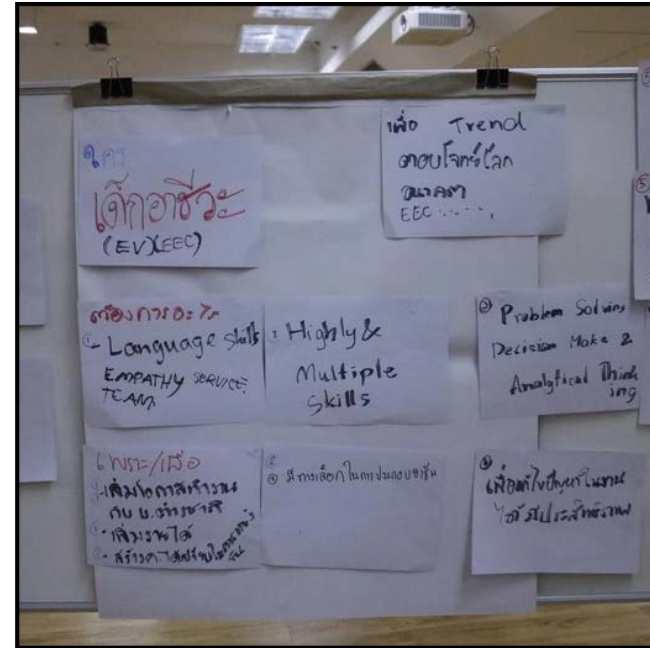 ใคร
เด็กอาชีวะ
(EV)(EEC)
เพื่อ Trend
ตอบโจทย์โลก
อนาคต
EEC .....,
ต้องการอะไร
① - Language skills
EMPATHY SERVICE
TEAM
2 Highly &
Multiple
Skills
③ Problem Solving
Decision Make &
Analytical Think
ing
เพราะ/เพื่อ
- เพิ่มโอกาสทำงาน
กับ บ.ต่างชาติ
- เพิ่มรายได้
- สร้างความได้เปรียบใน
② มีทางเลือกในการประกอบอาชีพ
③ เพื่อแก้ไขปัญหาในงาน
ได้มีประสิทธิภาพ
⑤